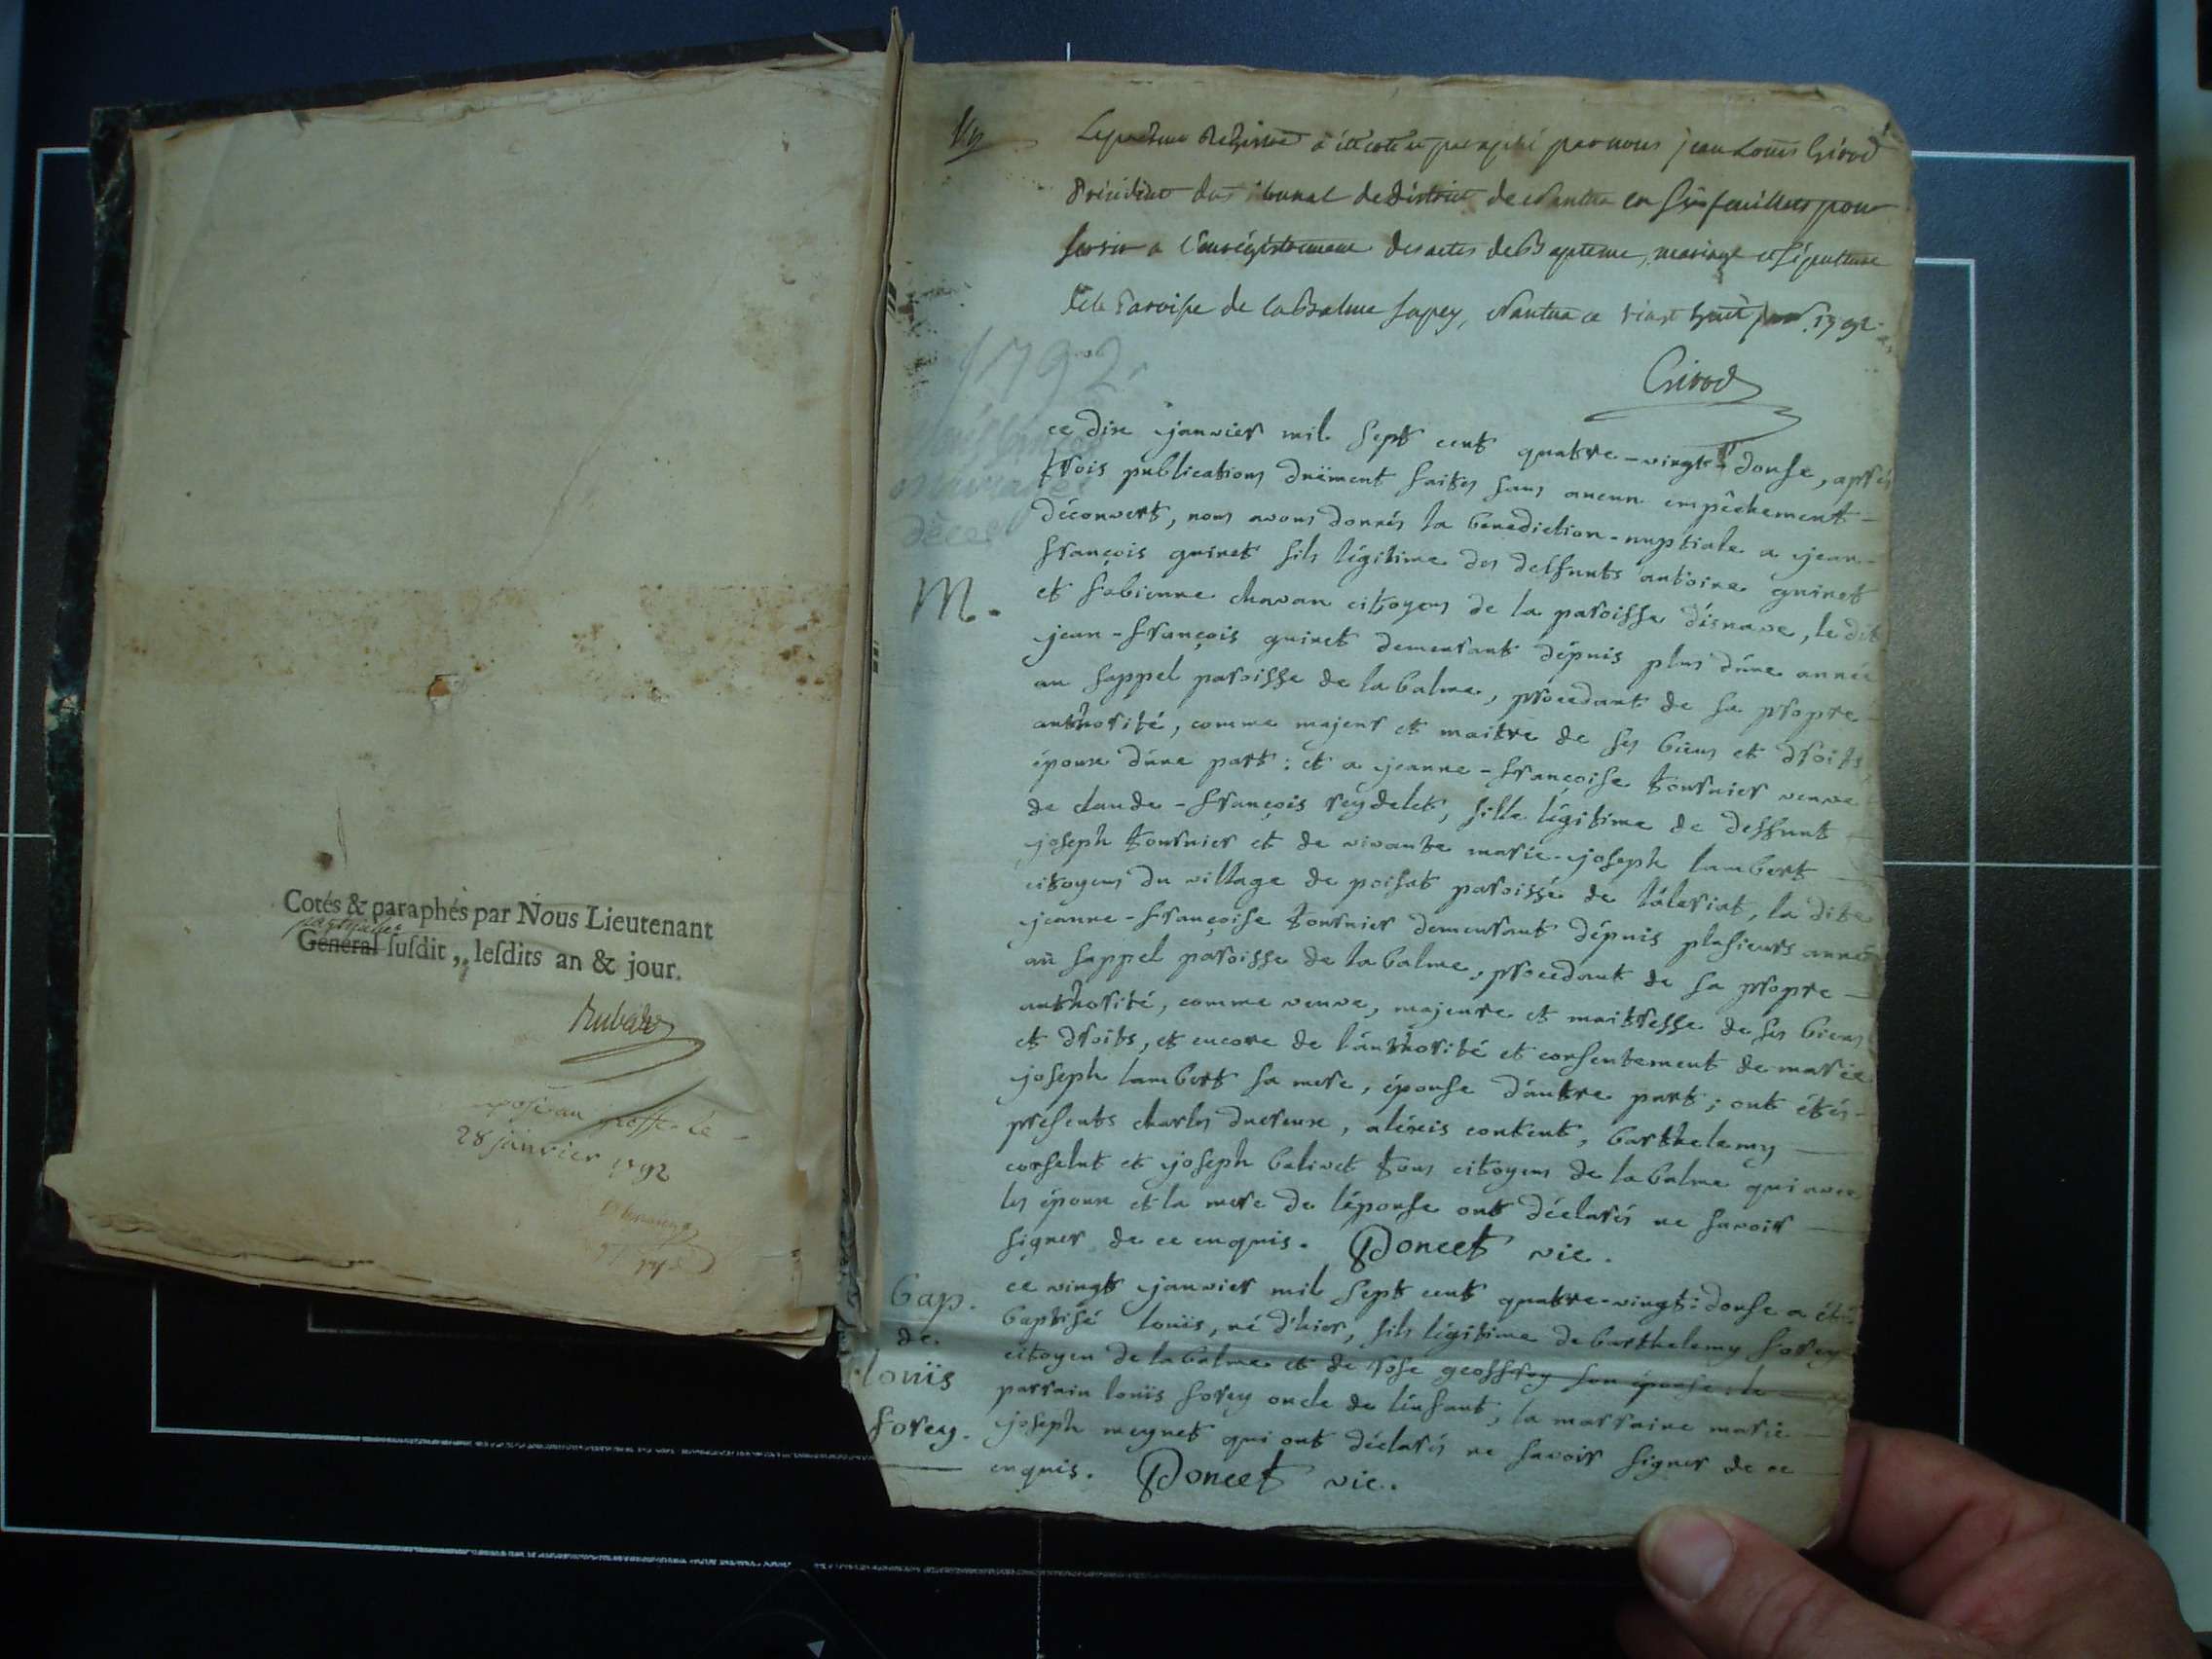 Cotés & paraphés par Nous Lieutenant
particulier
General susdit, lesdits an & jour.
greffe le
28 janvier 1792
Le present Registre a été coté et paraphé par nous jean Louis Girod
President du tribunal de District de Nantua en six feuillets pour
servir a l'enregistrement des actes de Bapteme, mariage et sépulture
de la Paroisse de la Balme Sapey, Nantua ce vingt huit janv. 1792
Girod
1792
Mariages
Décès
M.
ce dix janvier mil sept cent quatre-vingt-douse, après
trois publications duëment faites sans aucun empêchement
déconvert, nous avons donnés la benediction-nuptiale a jean-
françois guinet fils légitime des deffunts antoine guinet
et fabienne chavan citoyens de la paroisse d'isnave, le dit
jean-françois guinet demeurant dépuis plus d'une année
au sappel paroisse de la balme, procedant de sa propre
authorité, comme majeur et maitre de ses biens et droits,
époux d'une part: et a jeanne-françoise tournier veuve
de claude-françois reydelet, fille légitime de deffunt
joseph tournier et de vivante marie-joseph lambert
citoyens du village de poisat paroisse de láleriat, la dite
jeanne-françoise tournier demeurant dépuis plusieurs année
au sappel paroisse de la balme, procedant de sa propre
authorité, comme veuve, majeure et maitresse de ses biens
et droits, et encore de l'authorité et consentement de marie
joseph lambert sa mere, épouse d'autre part; ont étés
présents charles ducreux, aléxis content, barthelemy
corselut et joseph balivet tous citoyens de la balme qui avec
les époux et la mere de l'épouse ont déclarés ne savoir
signer de ce enquis. Poncet vic.
bap.
de
louïs
forey.
ce vingt janvier mil sept cent quatre-vingt-douse a été
baptisé louïs, né d'hier, fils légitime de barthelemy forey
citoyen de la balme et de rose geoffroy son épouse, le
parrain louïs forey oncle de l'enfant, la marraine marie
joseph meynet qui ont déclarés ne savoir signer de ce
enquis. Poncet vic.